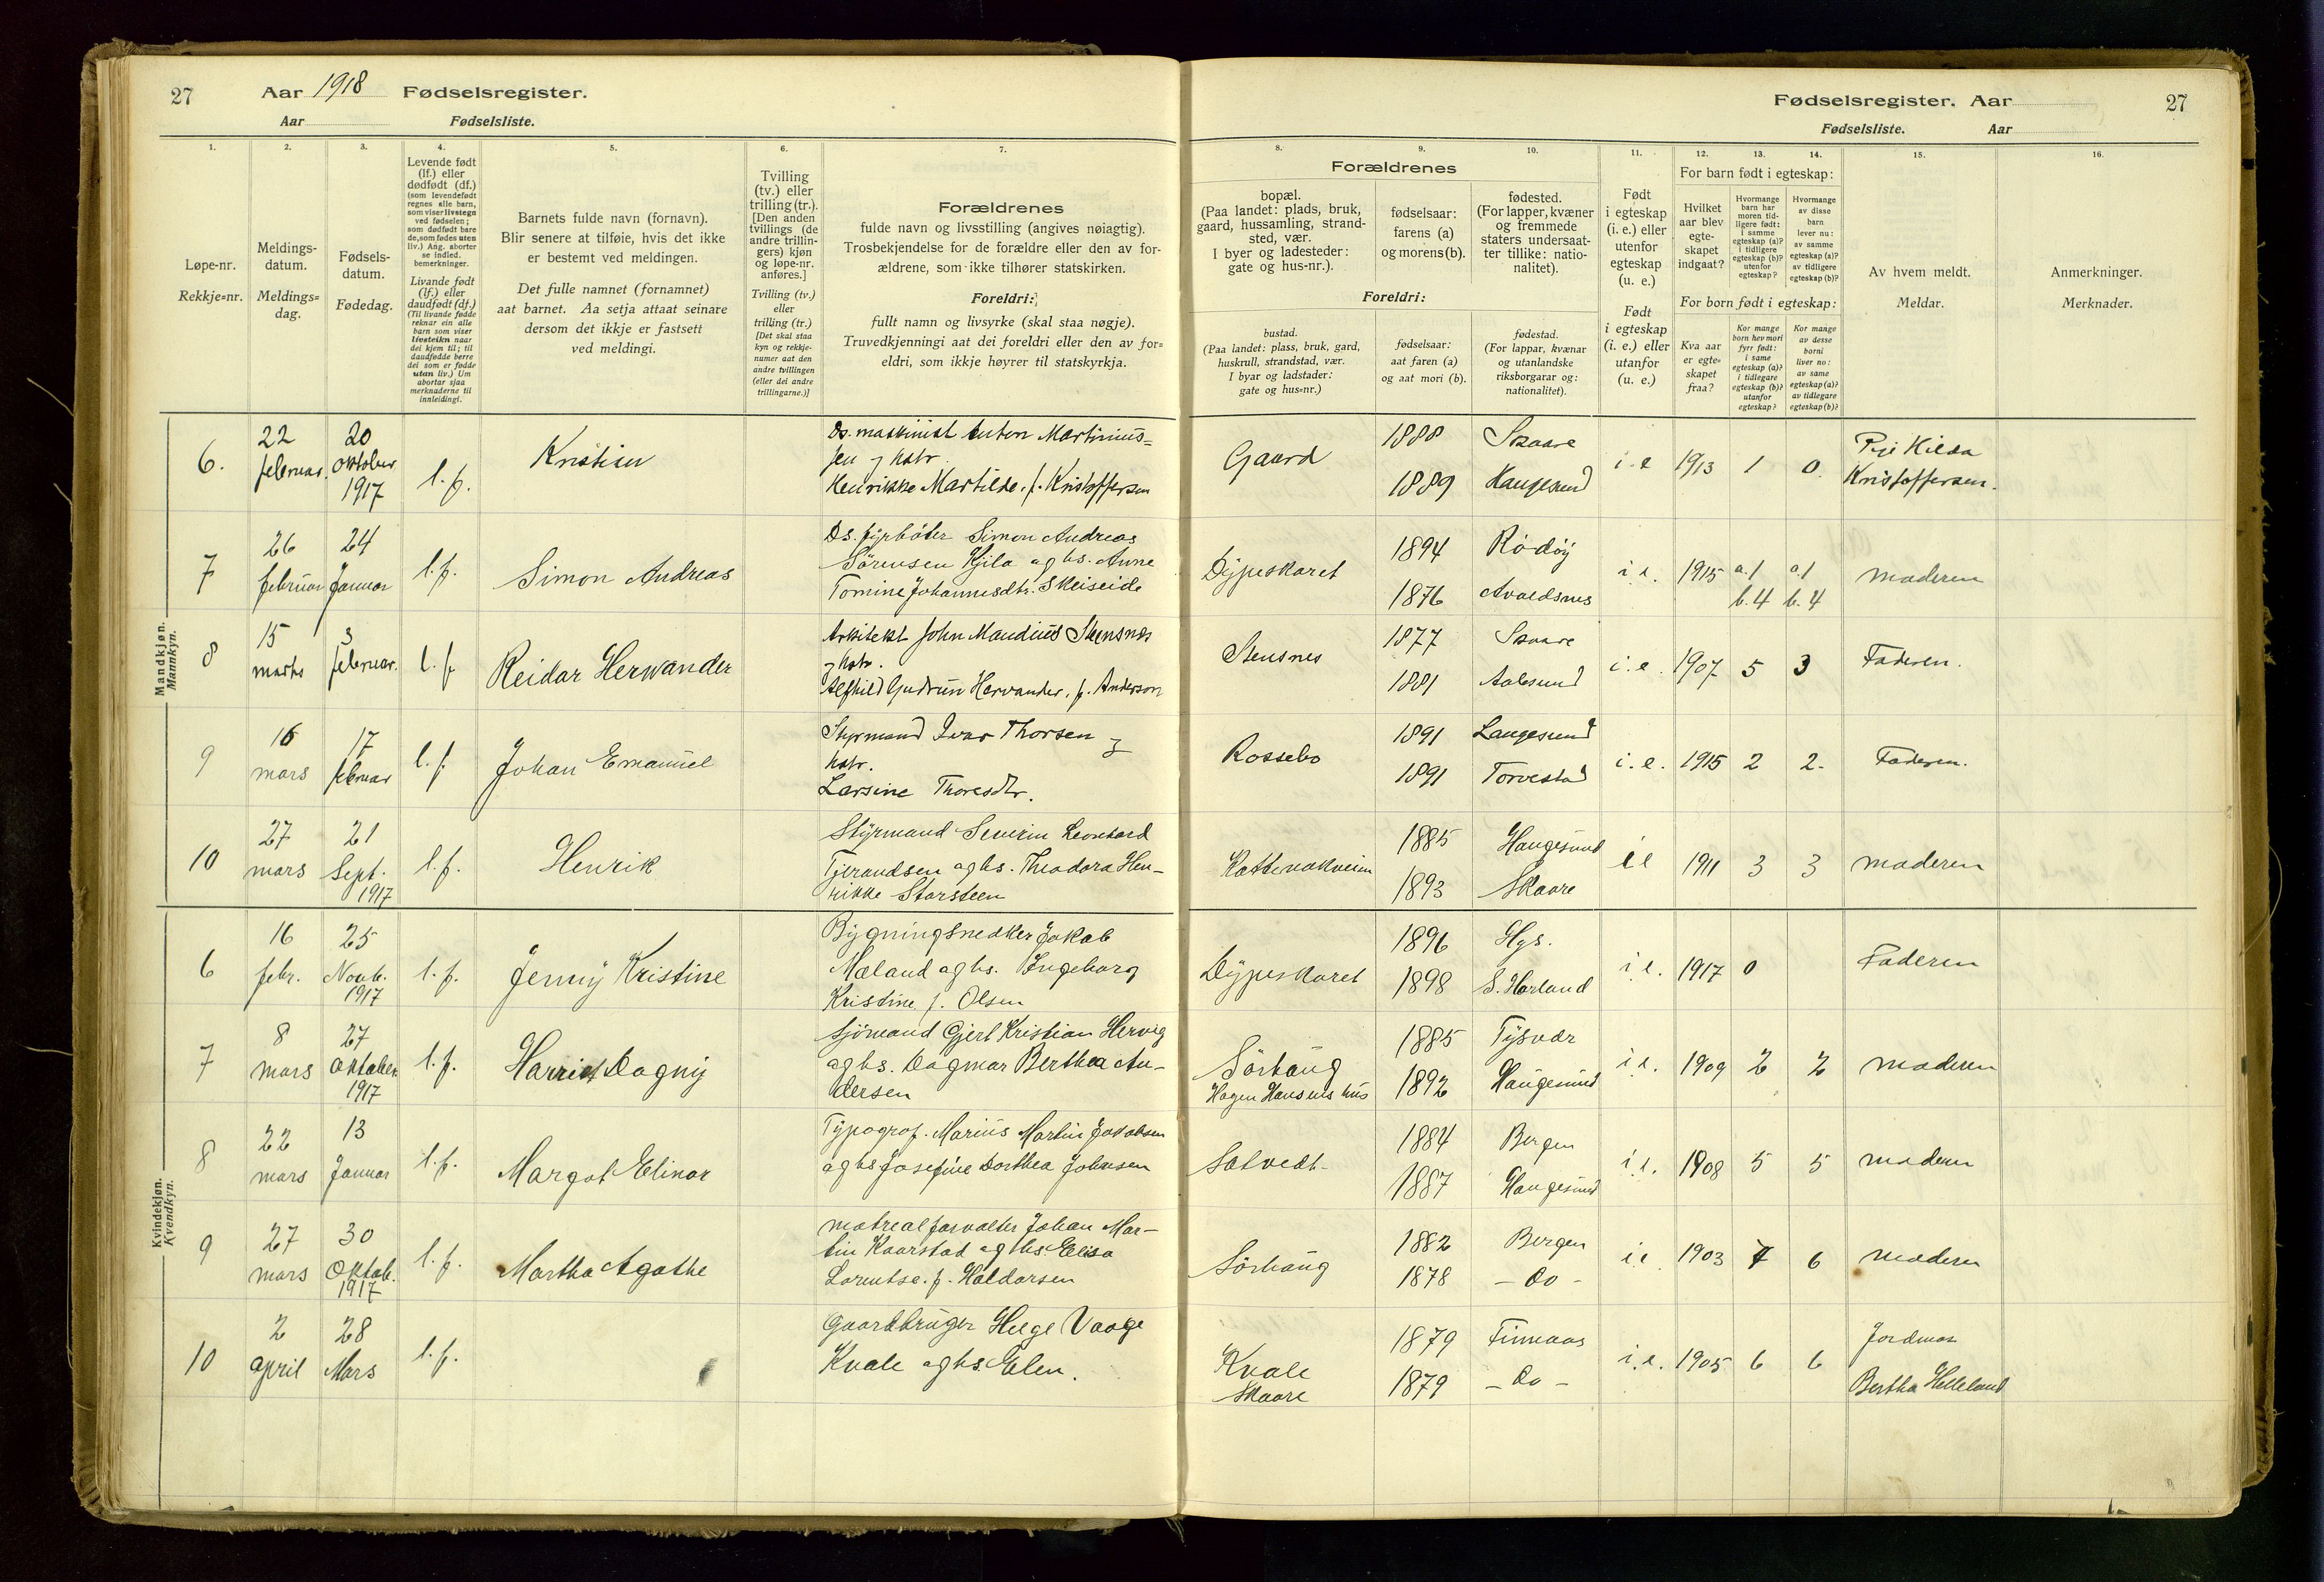 27 Aar 1918 Fødselsregister.
Aar Fødselsliste.
Fødselsregister. Aar 27
Fødselsliste. Aar
1. 2. 3. 4. 5. 6. 7. 8. 9. 10. 11. 12. 13. 14. 15. 16.
Løpe-nr.
Rekkje=nr.
Meldings-
datum.
Meldings=
dag.
Fødsels-
datum.
Fødedag.
Levende født
(lf.) eller
dødfødt (df.)
(som levendefødt
regnes alle barn,
som viser livstegn
ved fødselen;
som dødfødt bare
de, som fødes uten
liv.) Ang. aborter
se indled.
bemerkninger.
Livande født
(lf.) eller
daudfødt (df.)
(Til livande fødde
reknar ein alle
barn som viser
livsteikn naar
dei kjem til; til
daudfødde berre
dei som er fødde
utan liv.) Um
abortar sjaa
merknaderne til
innleidingi.
Barnets fulde navn (fornavn).
Blir senere at tilføie, hvis det ikke
er bestemt ved meldingen.
Det fulle namnet (fornamnet)
aat barnet. Aa setja attaat seinare
dersom det ikkje er fastsett
ved meldingi.
Tvilling
(tv.) eller
trilling (tr.).
[Den anden
tvillings (de
andre trillin-
gers) kjøn
og løpe-nr.
anføres.]
Tvilling (tv.)
eller
trilling (tr.)
[Det skal staa
kyn og rekkje-
numer aat den
andre tvillingen
(eller dei andre
trillingarne.)]
Forældrenes
fulde navn og livsstilling (angives nøiagtig).
Trosbekjendelse for de forældre eller den av for-
ældrene, som ikke tilhører statskirken.
Foreldri:
fullt namn og livsyrke (skal staa nøgje).
Truvedkjenningi aat dei foreldri eller den av for=
eldri, som ikkje høyrer til statskyrkja.
Forældrenes
bopæl.
(Paa landet: plads, bruk,
gaard, hussamling, strand-
sted, vær.
I byer og ladesteder:
gate og hus-nr.).
fødselsaar:
farens (a)
og morens (b).
fødested.
(For lapper, kvæner
og fremmede
staters undersaat-
ter tillike: natio-
nalitet).
Foreldri:
bustad.
(Paa landet: plass, bruk, gard,
huskrull, strandstad, vær.
I byar og ladstader:
gate og hus=nr.)
fødselsaar:
aat faren (a)
og aat mori (b).
fødestad.
(For lappar, kvænar
og utanlandske
riksborgarar og:
nationalitet).
Født
i egteskap
(i. e.) eller
utenfor
egteskap
(u. e.)
Født
i egteskap
(i. e.) eller
utanfor
(u. e.)
For barn født i egteskap:
Hvilket
aar blev
egte-
skapet
indgaat?
Hvormange
barn har
moren tid-
ligere født:
i samme
egteskap (a)?
i tidligere
egteskap (b)?
utenfor
egteskap?
Hvormange
av disse
barn
lever nu:
av samme
egteskap (a)?
av tidligere
egteskap (b)?
For born født i egteskap:
Kva aar
er egte=
skapet
fraa?
Kor mange
born hev mori
fyrr født:
i same
egteskap (a)?
i tidlegare
egteskap (b)?
utanfor
egteskap?
Kor mange
av desse
borni
liver no:
av same
egteskap (a)?
av tidlegare
egteskap (b)?
Av hvem meldt.
Meldar.
Anmerkninger.
Merknader.
Mandkjøn.
Mannkyn.
6. 22 februar. 20 oktober 1917 l.f. Kristian
Ds. maskinist Anton Martinius=
sen og hstr.
Henrikke Martilde. f. Kristoffersen
Gaard 1888 Skaare
1889 Haugesund
i.e 1913 1 0. Hilda
Kristoffersen.
7 26 februar 24 Januar l.f. Simon Andreas
Ds. fyrbøter Simon Andreas
Sørensen Kjila og hs. Anne
Tomine Johannesdtr. Skeiseide
Dypeskaret 1894 Rødøy
1876 Avaldsnes
i.e. 1915 a.1 a.1
b.4 b.4
moderen
8 15 marts 3 februar. l.f. Reidar Herwander
Arkitekt John Maudius Stensnes
og hstr.
Alfhild Gudrun Herwander, f. Anderson
Stensnes 1877 Skaare
1881 Aalesund
i.e. 1907 5 3 Faderen.
9 16 mars 17 februar l.f. Johan Emanuel
Styrmand Ivar Thorsen og
hstr.
Larsine Thoresdtr.
Rossebø 1891 Langesund
1891 Torvestad
i.e. 1915 2 2. Faderen.
10 27 mars 21 Sept. 1917 l.f. Henrik
Styrmand Severin Leonhard
Tjerandsen og hs. Theodora Hen-
rikke Storsteen
1885 Haugesund
1893 Skaare
i e 1911 3 3 moderen
Kvindekjøn.
Kvendkyn.
6 16 febr. 25 Novb. 1917 l.f. Jenny Kristine
Bygningsnedker Jakob
Mæland og hs. Ingeborg
Kristine f. Olsen
Dypeskaret 1896 Hgs.
1898 S. Hørland
i.e. 1917 0 Faderen
7 8 mars 27 Oktober 1917 l.f. Harriet Dagny
Sjömand Gjert Kristian Hervig
og hs. Dagmar Berthea An-
dersen
Sörhaug
Hagen Hansens hus
1885 Tysvær
1892 Haugesund
i.e. 1909 2 2 moderen
8 22 mars 13 Januar l.f. Margot Elinor
Typograf. Marius Martin Jakobsen
og hs Josefine Dorthea Johnsen
Solvedt 1884 Bergen
1887 Haugesund
i.e. 1908 5 5 moderen
9 27 mars 30 Oktob. 1917 l.f. Martha Agathe
matrealforvalter Johan Mar-
tin Kaarstad og hs Elisa
Lorentse. f. Haldorsen
Sörhaug 1882 Bergen
1878 - Do -
i.e 1903 7 6 moderen
10 2 april 28 Mars l.f.
Gaardbruger Helge Vaage
Kvale og hs. Elen.
Kvale
Skaare
1879 Finnaas
1879 - Do -
i.e. 1905 6 6 Jordmor
Bertha Helleland